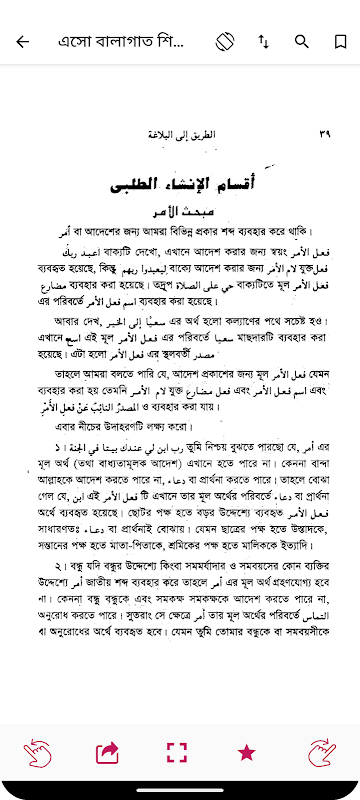 এসো বালাগাত শি...
الطريق إلى البلاغة ٣٩
أقسام الإنشاء الطلبي
مبحث الأمر
أمر বা আদেশের জন্য আমরা বিভিন্ন প্রকার শব্দ ব্যবহার করে থাকি।
اعبد ربك বাক্যটি দেখো, এখানে আদেশ করার জন্য স্বয়ং فعل الأمر
ব্যবহৃত হয়েছে, কিন্তু ليعبدوا ربهم বাক্যে আদেশ করার জন্য لام الأمر যুক্ত فعل
مضارع ব্যবহার করা হয়েছে। তদ্রূপ حي على الصلاة বাক্যটিতে মূল فعل الأمر
এর পরিবর্তে اسم فعل الأمر ব্যবহার করা হয়েছে।
আবার দেখ, سعيًا إلى الخير এর অর্থ হলো কল্যাণের পথে সচেষ্ট হও।
এখানে اسع এই মূল فعل الأمر এর পরিবর্তে سعيا মাছদারটি ব্যবহার করা
হয়েছে। এটা হলো فعل الأمر এর স্থলবর্তী مصدر
তাহলে আমরা বলতে পারি যে, আদেশ প্রকাশের জন্য মূল فعل الأمر যেমন
ব্যবহার করা হয় তেমনি لام الأمر যুক্ত فعل مضارع এবং اسم فعل الأمر এবং
المصدر النائب عن فعل الأمر ও ব্যবহার করা যায়।
এবার নীচের উদাহরণটি লক্ষ্য করো।
رب ابن لي عندك بيتا في الجنة তুমি নিশ্চয় বুঝতে পারছো যে, أمر এর
মূল অর্থ (তথা বাধ্যতামূলক আদেশ) এখানে হতে পারে না। কেননা বান্দা
আল্লাহকে আদেশ করতে পারে না, دعاء বা প্রার্থনা করতে পারে। তাহলে বোঝা
গেল যে, ابن এই فعل الأمر টি এখানে তার মূল অর্থের পরিবর্তে دعاء বা প্রার্থনা
অর্থে ব্যবহৃত হয়েছে। ছোটর পক্ষ হতে বড়র উদ্দেশ্যে ব্যবহৃত فعل الأمر
সাধারণতঃ دعاء বা প্রার্থনাই বোঝায়। যেমন ছাত্রের পক্ষ হতে উস্তাদকে,
সন্তানের পক্ষ হতে মাতা-পিতাকে, শ্রমিকের পক্ষ হতে মালিককে ইত্যাদি।
২। বন্ধু যদি বন্ধুর উদ্দেশ্যে কিংবা সমমর্যাদার ও সমবয়সের কোন ব্যক্তির
উদ্দেশ্যে أمر জাতীয় শব্দ ব্যবহার করে তাহলে أمر এর মূল অর্থ গ্রহণযোগ্য হবে
না। কেননা বন্ধু বন্ধুকে এবং সমকক্ষ সমকক্ষকে আদেশ করতে পারে না,
অনুরোধ করতে পারে। সুতরাং সে ক্ষেত্রে أمر তার মূল অর্থের পরিবর্তে التماس
বা অনুরোধের অর্থে ব্যবহৃত হবে। যেমন তুমি তোমার বন্ধুকে বা সমবয়সীকে